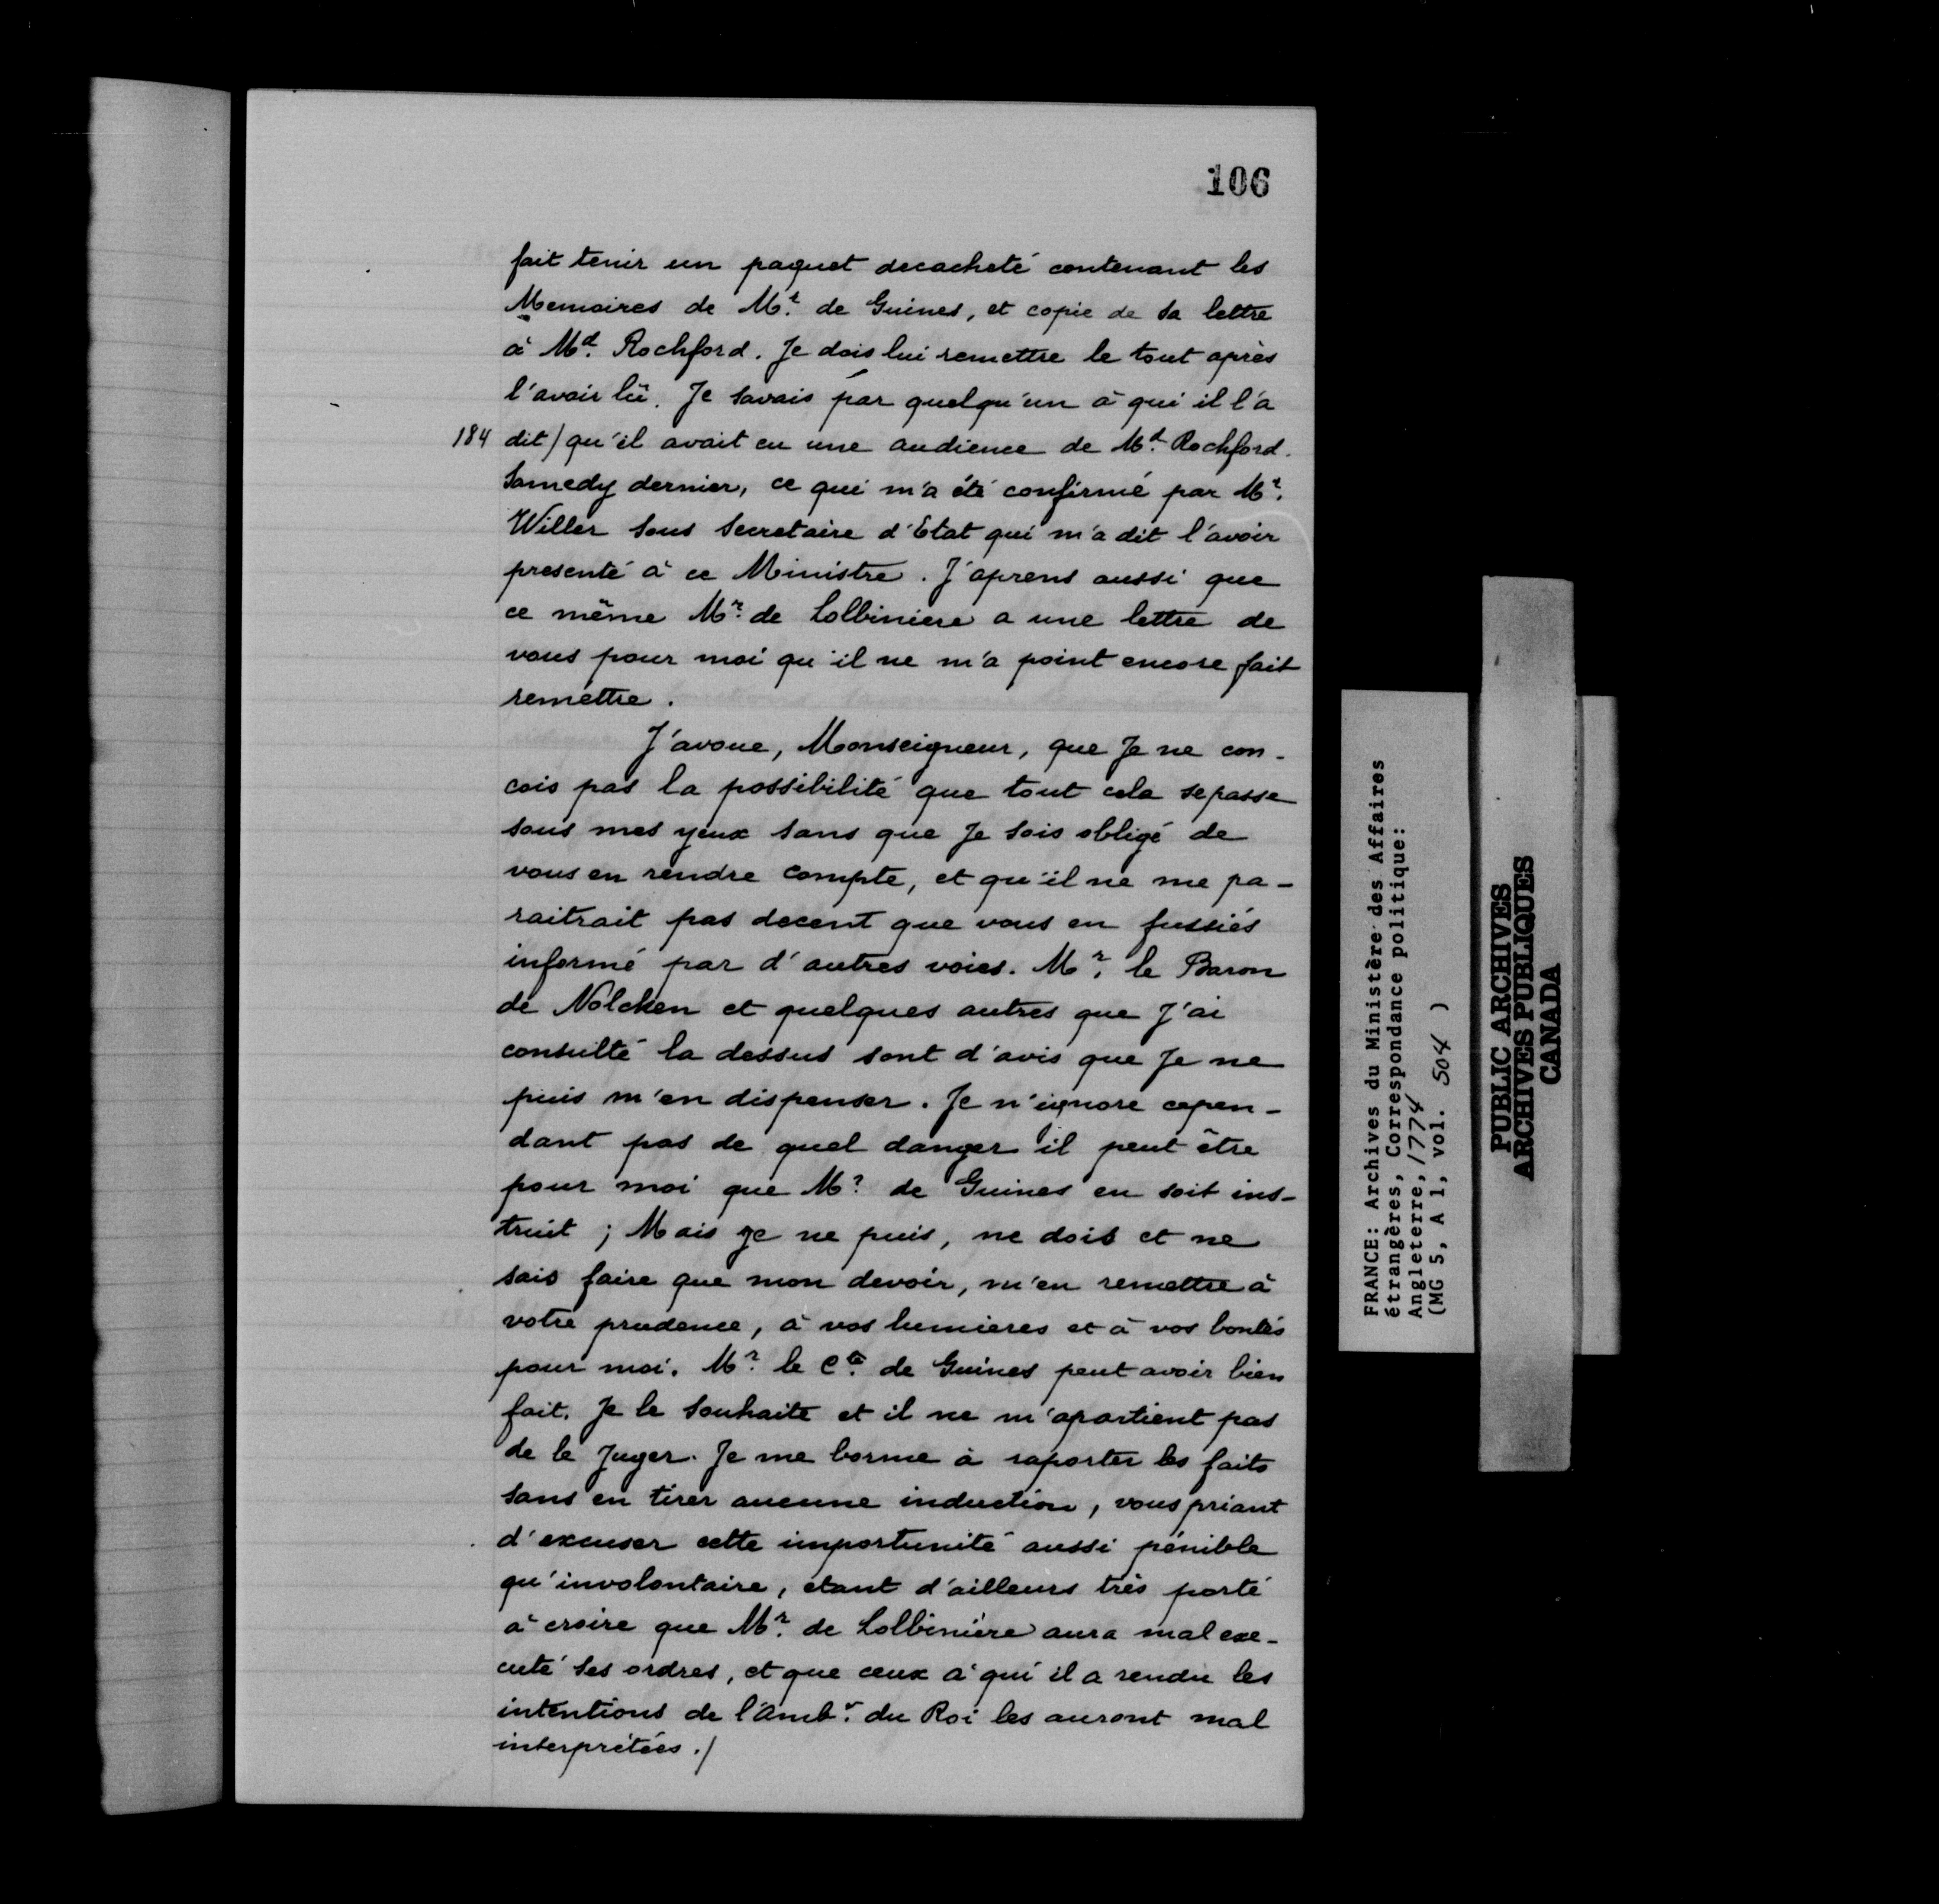 106
fait tenir un paquet decacheté contenant les
Memoires de Mr. de Guines, et copie de sa lettre
à Md. Rochford. Je dois lui remettre le tout après
l'avoir lû. Je savais par quelqu'un à qui il l'a
184 dit/ qu'il avait eu une audience de Md. Rochford.
Samedy dernier, ce qui m'a été confirmé par Mr.
Willer sous Secretaire d'Etat qui m'a dit l'avoir
presenté à ce Ministre. J'aprens aussi que
ce même Mr. de Lolbiniere a une lettre de
vous pour moi qu'il ne m'a point encore fait
remettre.
J'avoue, Monseigneur, que Je ne con-
cois pas la possibilité que tout cela se passe
sous mes yeux sans que Je sois obligé de
vous en rendre compte, et qu'il ne me pa-
raitrait pas decent que vous en fussiés
informé par d'autres voies. Mr. le Baron
de Nolcken et quelques autres que J'ai
consulté la dessus sont d'avis que Je ne
puis m'en dispenser. Je n'ignore cepen-
dant pas de quel danger il peut être
pour moi que Mr. de Guines en soit ins-
truit ; Mais je ne puis, ne dois et ne
sais faire que mon devoir, m'en remettre à
votre prudence, à vos lumieres et à vos bontés
pour moi. Mr. le Cte. de Guines peut avoir bien
fait. Je le souhaite et il ne m'apartient pas
de le Juger. Je me borne à raporter les faits
sans en tirer aucune induction, vous priant
d'excuser cette importunité aussi pénible
qu'involontaire, étant d'ailleurs très porté
à croire que Mr. de Lolbinière aura mal exe-
cuté ses ordres, et que ceux à qui il a rendu les
intentions de l'Ambr. du Roi les auront mal
interprétées./
FRANCE: Archives du Ministère des Affaires
étrangères, Correspondance politique:
Angleterre, 1774
(MG 5, A 1, vol. 504 )
PUBLIC ARCHIVES
ARCHIVES PUBLIQUES
CANADA